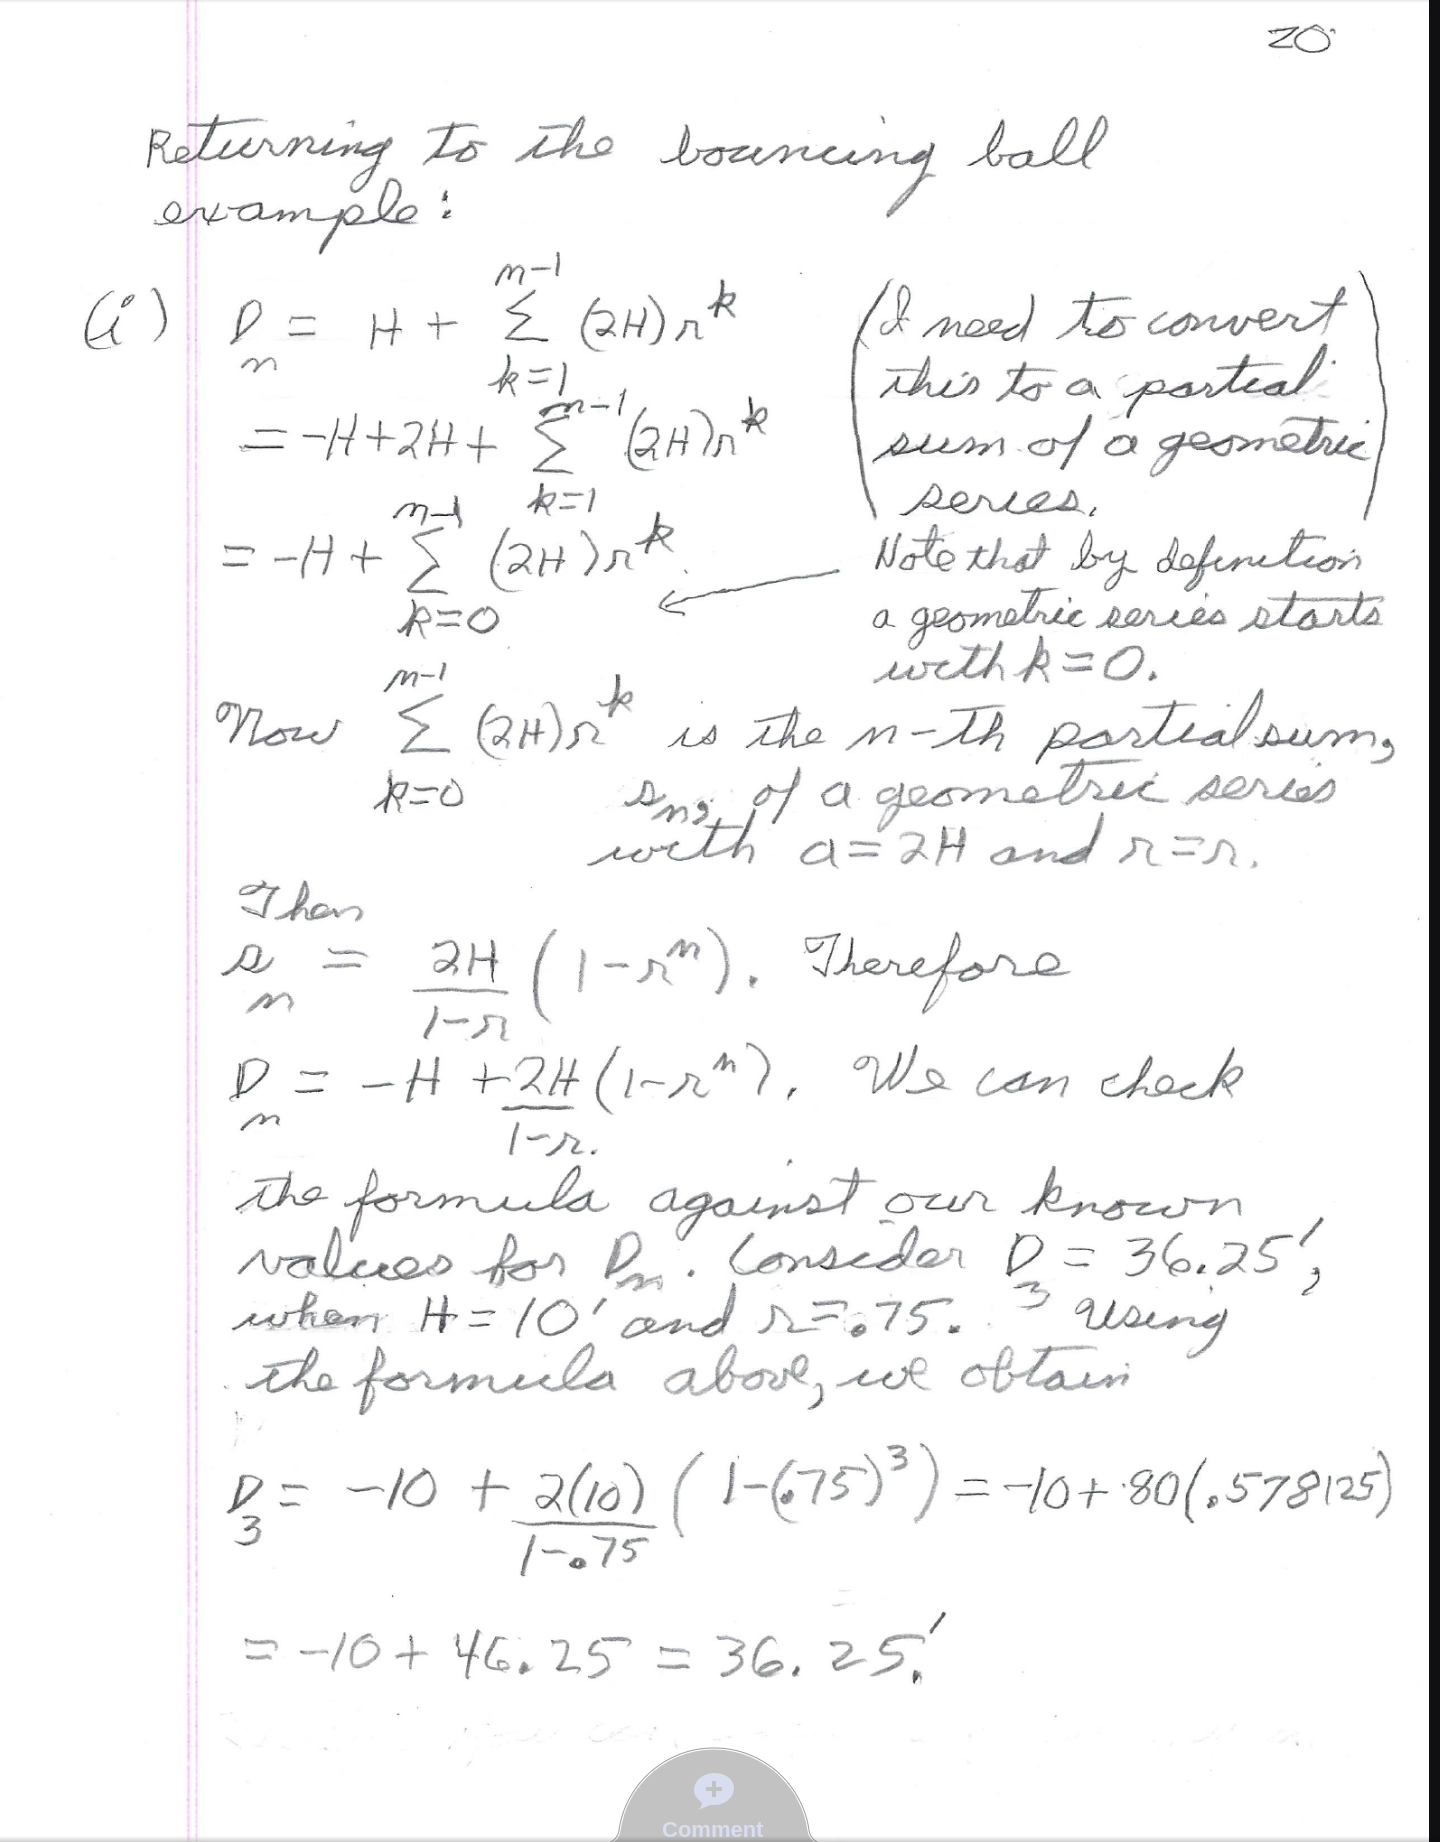 20
Returning to the bouncing ball
example:
(i) D_n = H + \sum_{k=1}^{n-1} (2H)r^k
(I need to convert
this to a partial
sum of a geometric
series.
= -H+2H+ \sum_{k=1}^{n-1} (2H)r^k
= -H + \sum_{k=0}^{n-1} (2H)r^k
Note that by definition
a geometric series starts
with k=0.
Now \sum_{k=0}^{n-1} (2H)r^k is the n-th partial sum,
s_n, of a geometric series
with a=2H and r=r.
Then
s_n = \frac{2H}{1-r} (1-r^n). Therefore
D_n = -H + \frac{2H}{1-r.} (1-r^n). We can check
the formula against our known
values for D_n. Consider D_3 = 36.25',
when H=10' and r=.75. Using
the formula above, we obtain
D_3 = -10 + \frac{2(10)}{1-.75} (1-(.75)^3) = -10+80(.578125)
= -10+46.25 = 36.25.'
Comment